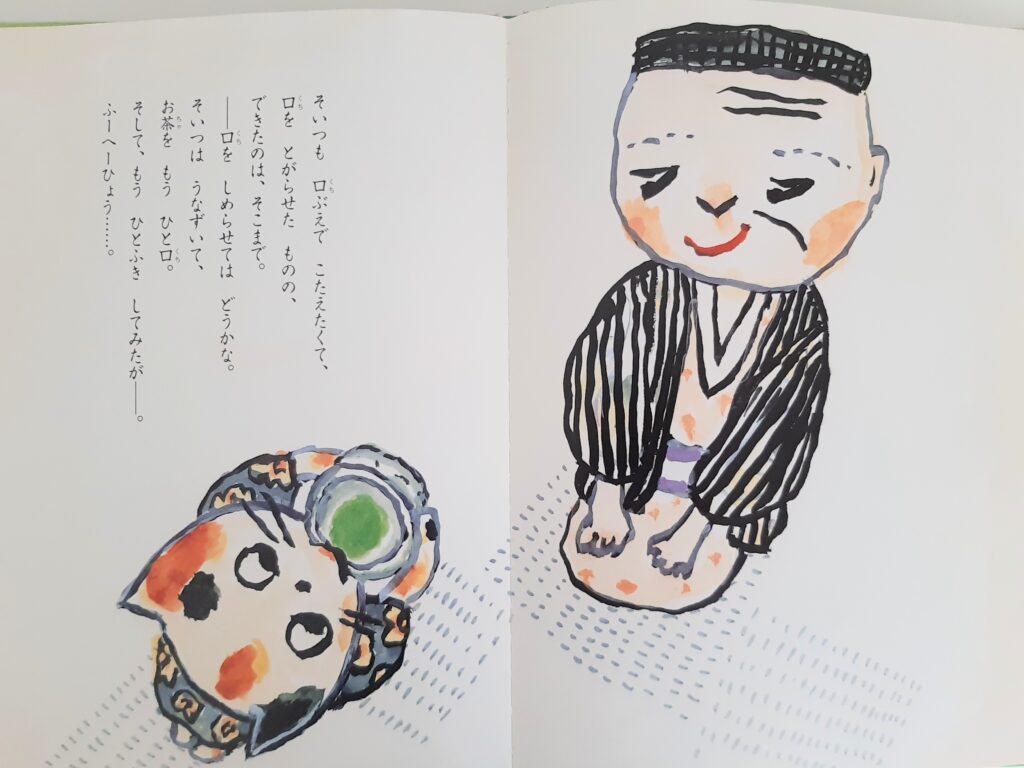 そいつも　口ぶえで　こたえたくて、
口を　とがらせた　ものの、
できたのは、そこまで。
――口を　しめらせては　どうかな。
そいつは　うなずいて、
お茶を　もう　ひと口。
そして、もう　ひとふき　してみたが――。
ふーへーひょう……。